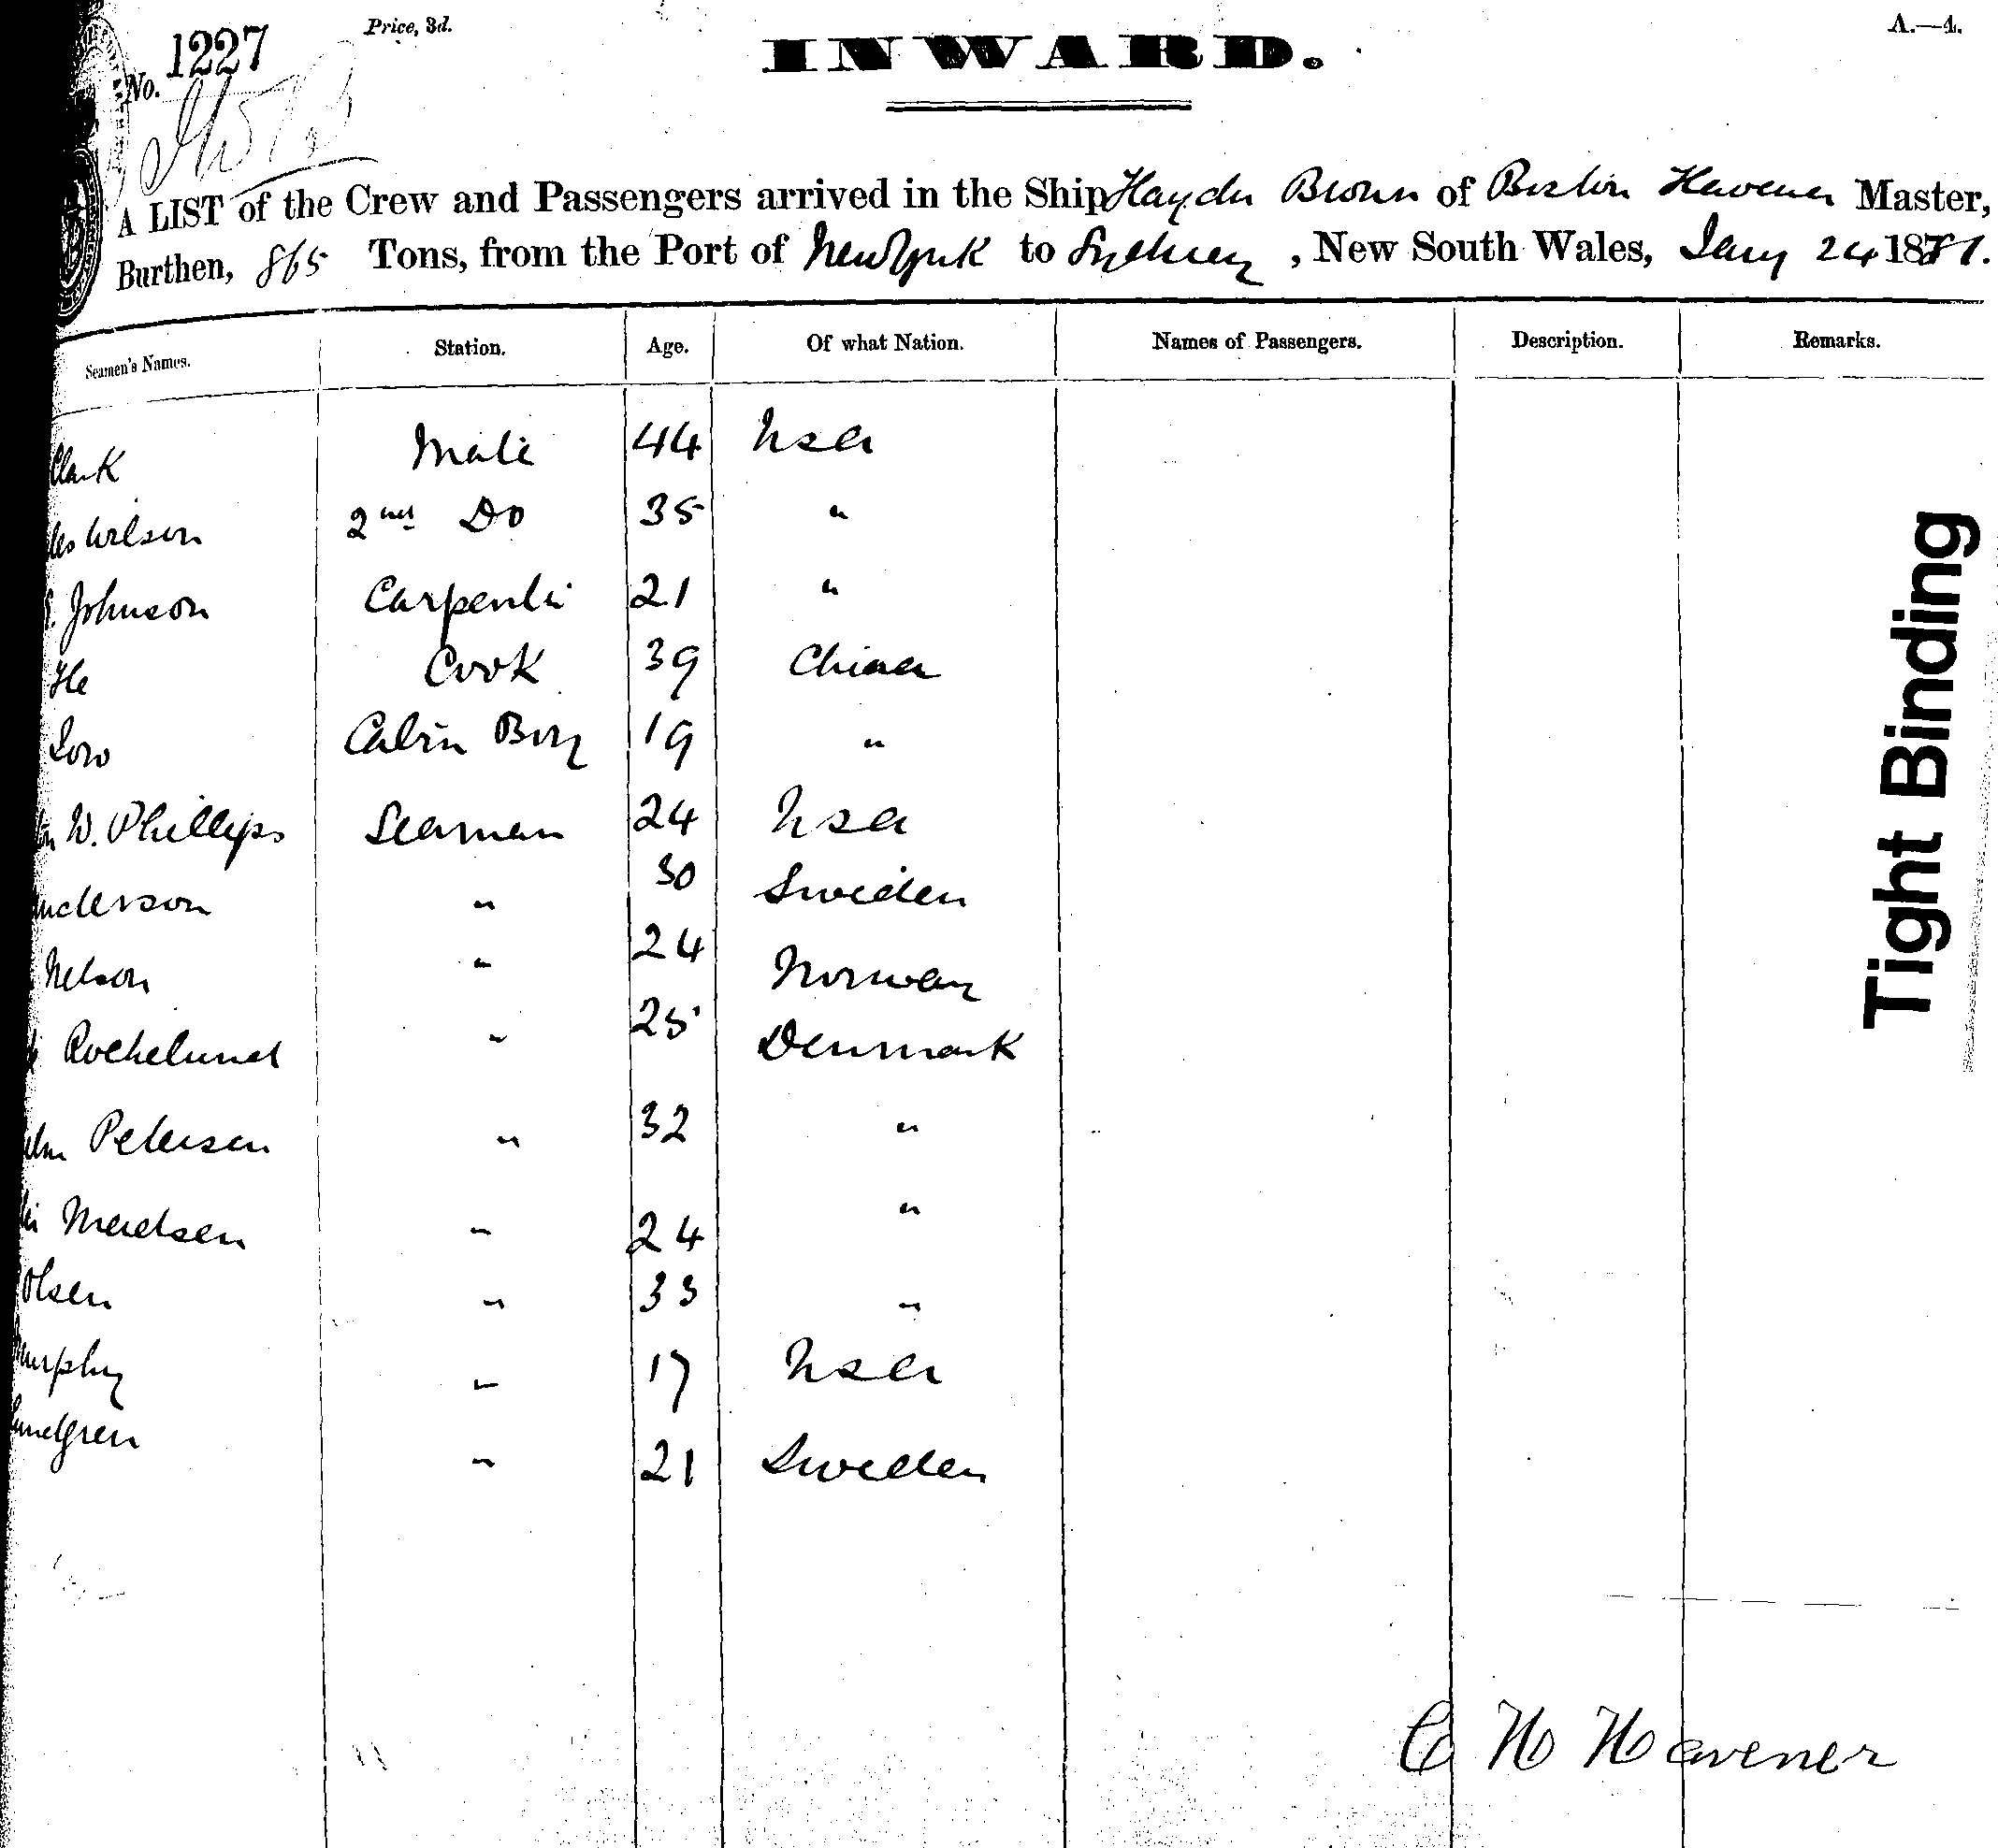 No. 1227
Price, 3d.
INWARD.
A.—4.
A LIST of the Crew and Passengers arrived in the Ship Hayden Brown of Boston Havener Master,
Burthen, 865 Tons, from the Port of New York to Sydney, New South Wales, Jany 24 1881.
Seamen's Names. Station. Age. Of what Nation. Names of Passengers. Description. Remarks.
Clark Mate 44 Usa
Wilson 2nd Do 35 "
Johnson Carpenter 21 "
He Cook 39 China
Low Cabin Boy 19 "
W. Phillips Seaman 24 Usa
anderson " 30 Sweden
Nelson " 24 Norway
Rochelund " 25 Denmark
Petersen " 32 "
Madsen " 24 "
Olsen " 33 "
Murphy " 17 Usa
Lundgren " 21 Sweden
C H Havener
Tight Binding